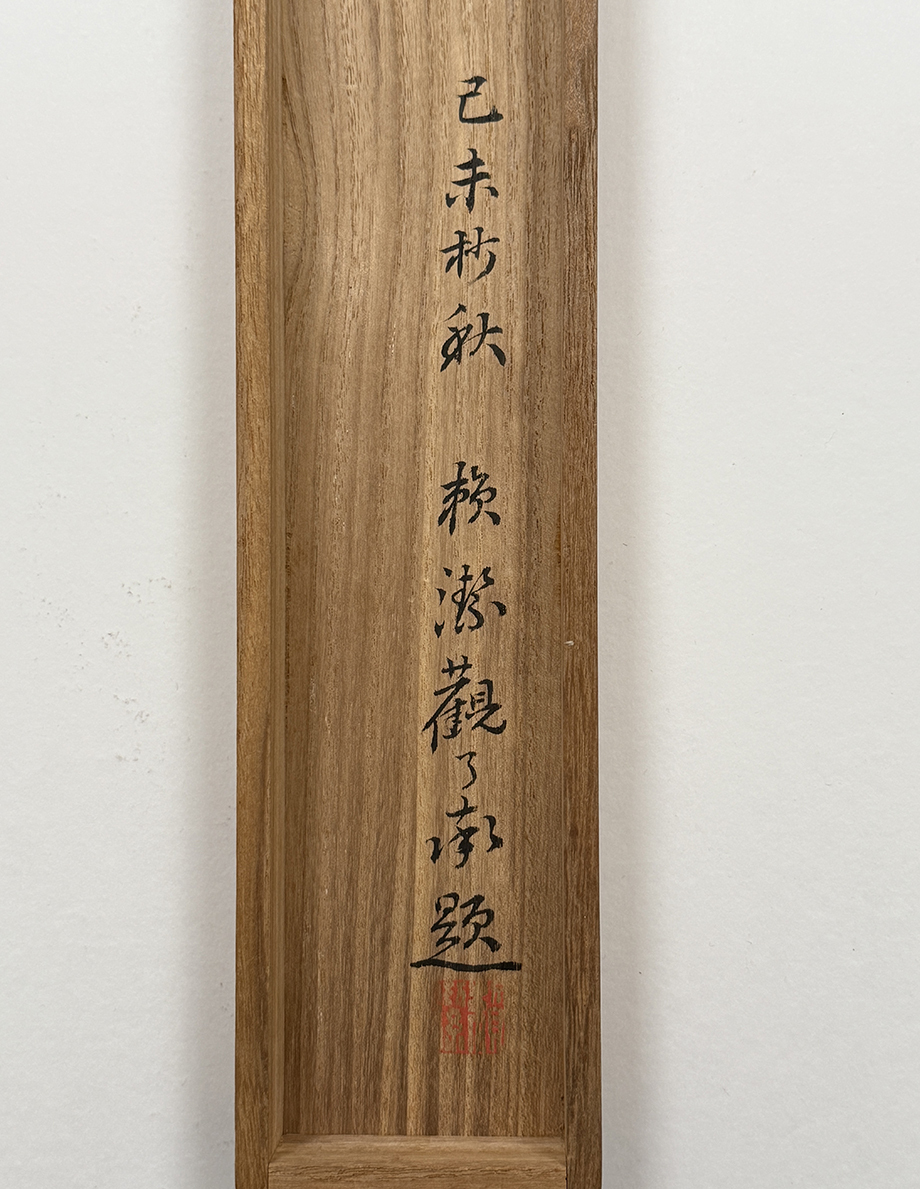 己未杪秋 賴潔觀了承題